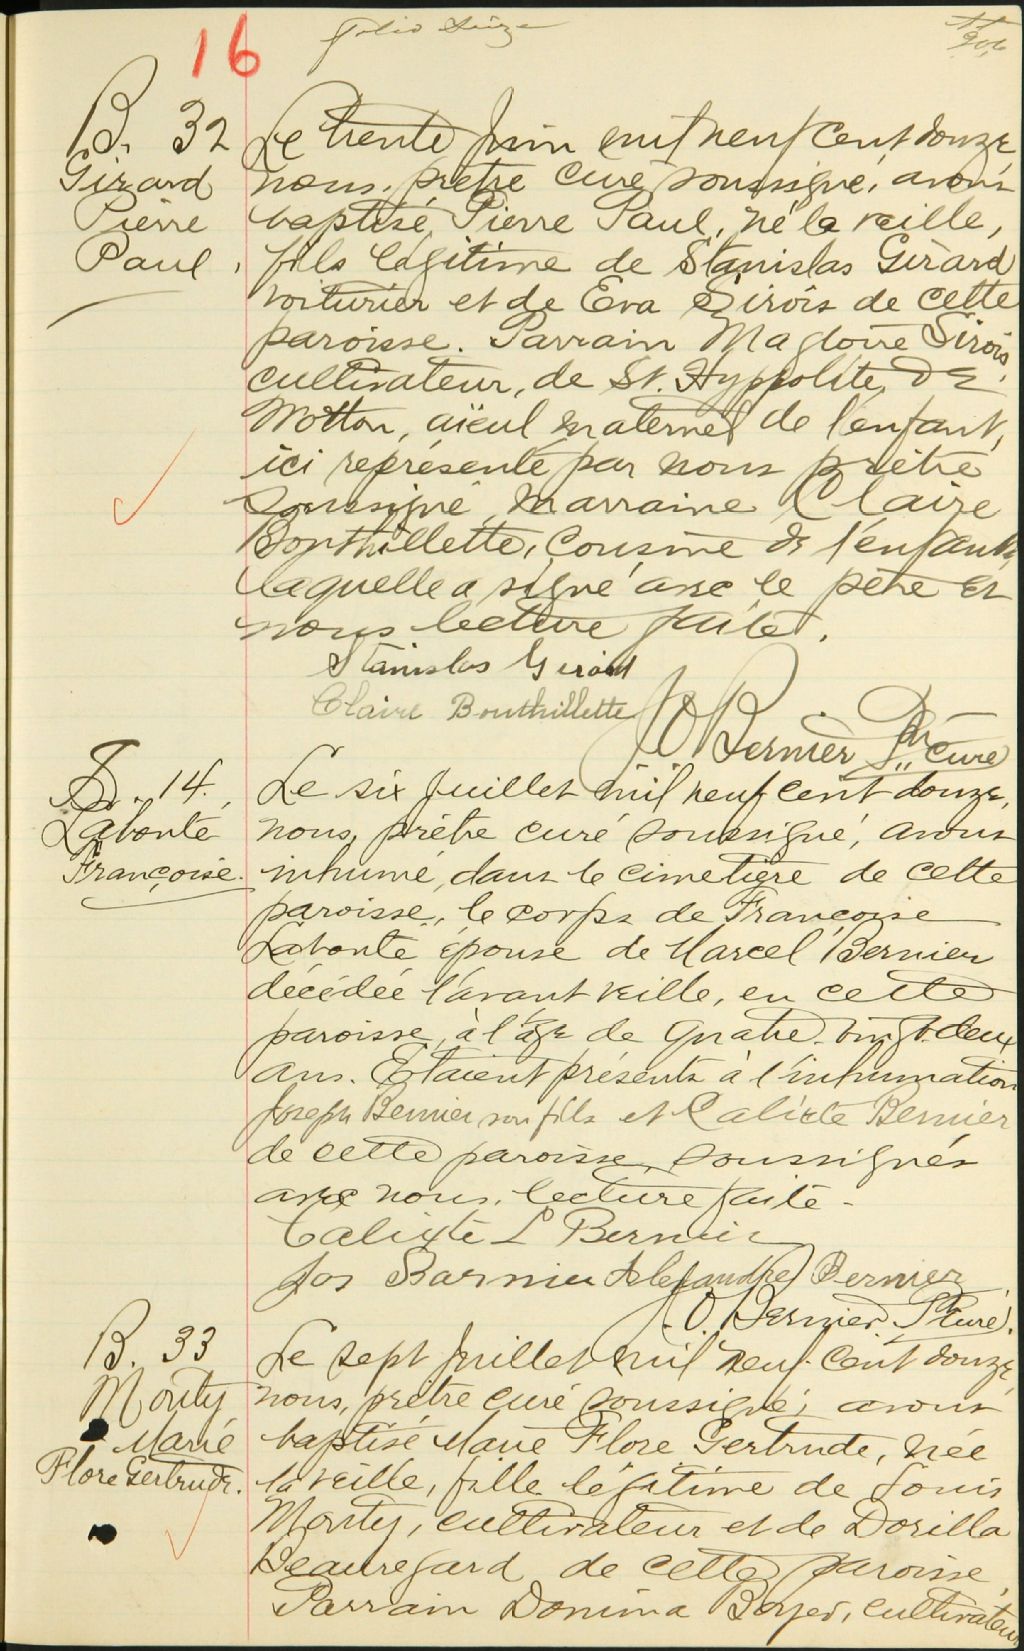 16
folio seize
B. 32
Girard
Pierre
Paul,
Le trente Juin mil neuf cent douze,
nous, prêtre curé soussigné, avons
baptisé Pierre Paul, né la veille,
fils légitime de Stanislas Girard
voiturier et de Eva Sirois de cette
paroisse. Parrain Magloire Sirois,
cultivateur, de St. Hyppolite, de
Wotton, aïeul maternel de l'enfant,
ici représenté par nous prêtre
soussigné, marraine Claire
Bouthillette, cousine de l'enfant,
laquelle a signé avec le père et
nous lecture faite.
Stanislas Girard
Claire Bouthillette
J O Bernier Ptre curé
S. 14.
Labonté
Françoise.
Le six Juillet mil neuf cent douze,
nous, prêtre curé soussigné, avons
inhumé, dans le cimetière de cette
paroisse, le corps de Françoise
Labonté épouse de Marcel Bernier
décédée l'avant veille, en cette
paroisse, à l'âge de quatre-vingt-deux
ans. Etaient présents à l'inhumation
Joseph Bernier son fils et Calixte Bernier
de cette paroisse, soussignés
avec nous, lecture faite -
Calixte L Bernier
Jos Barnier Alexandre Bernier
J. O. Bernier. Ptre Curé.
B. 33
Monty
Marie
Flore Gertrude.
Le sept Juillet mil neuf-cent douze,
nous, prêtre curé soussigné, avons
baptisé Marie Flore Gertrude, née
la veille, fille légitime de Louis
Monty, cultivateur et de Dorilla
Beauregard de cette paroisse,
Parrain Donima Boyer, cultivateur